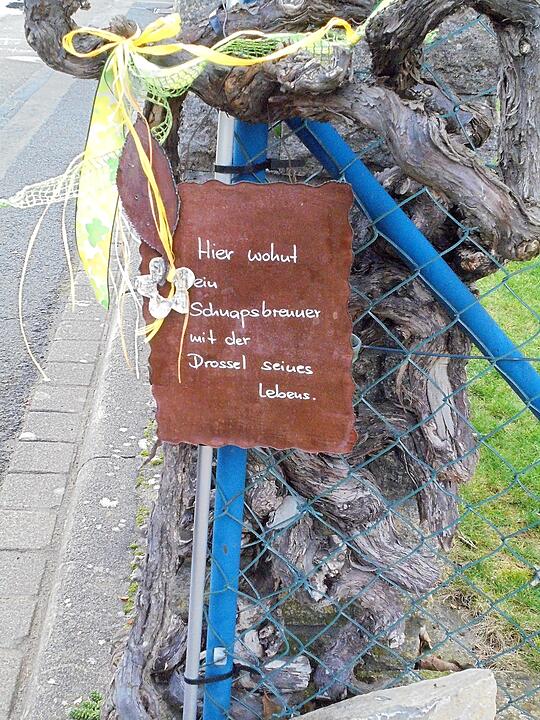 Hier wohnt
ein
Schnapsbrenner
mit der
Drossel seines
Lebens.